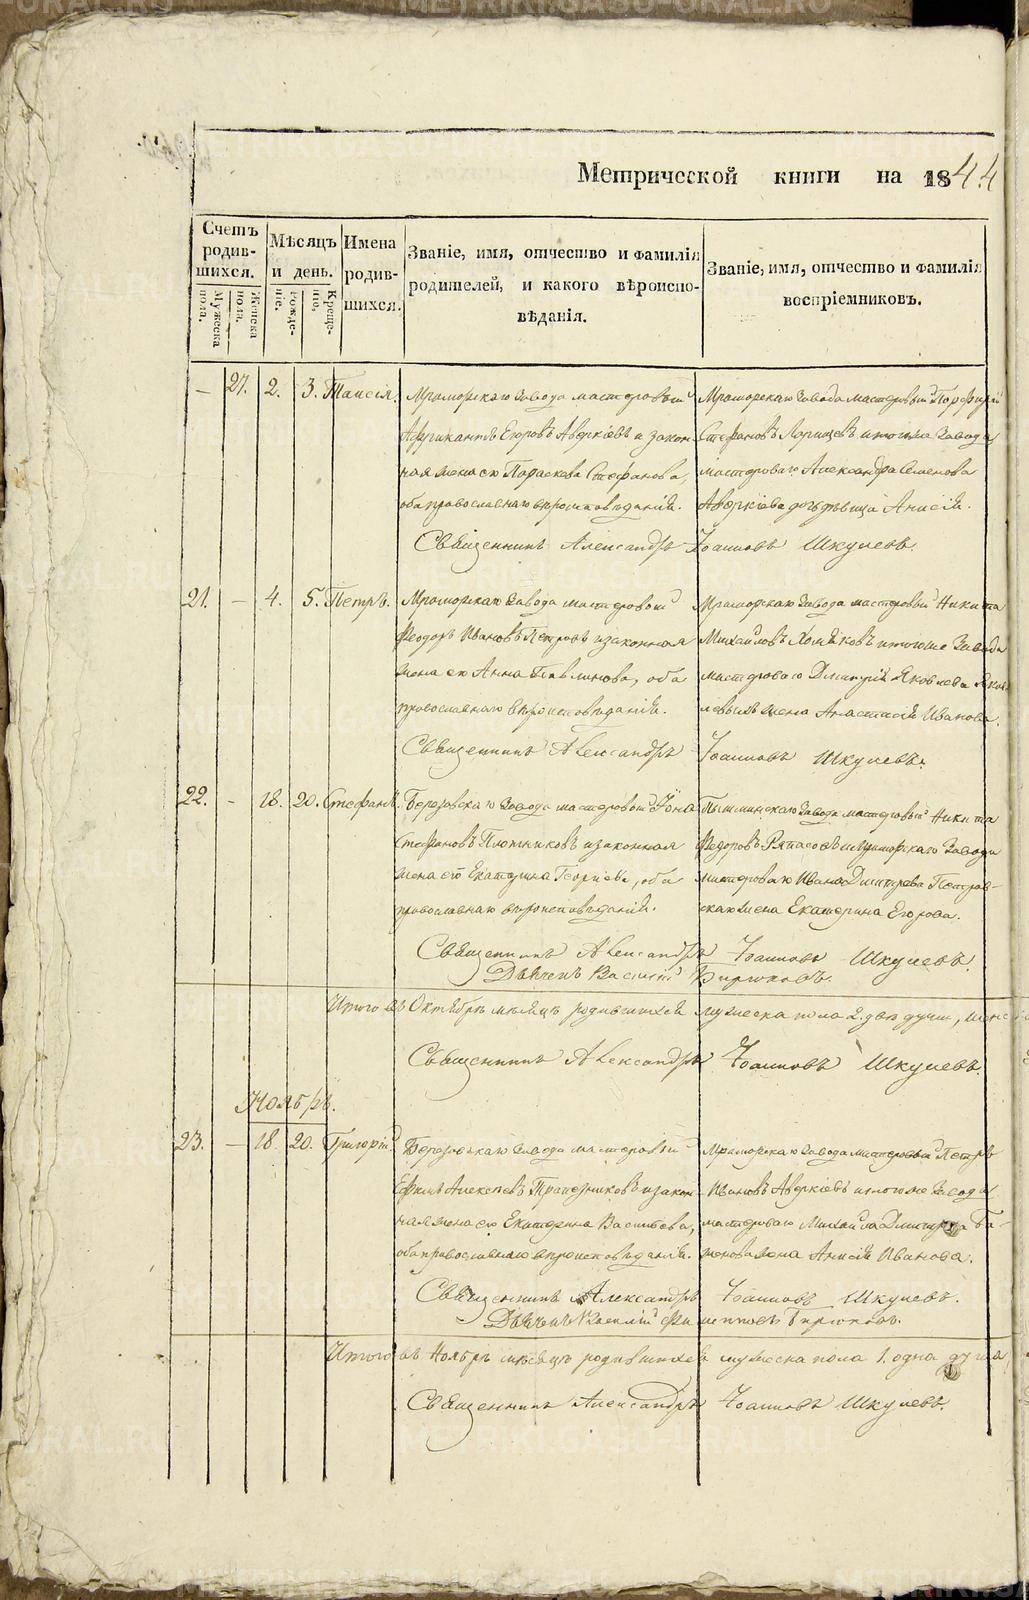 Метрической книги на 1844
Счетъ родившихся.
Мужеска пола.
Женска пола.
Мѣсяцъ и день.
Рожденіе.
Крещеніе.
Имена родившихся.
Званіе, имя, отчество и фамилія родителей, и какого вѣроисповѣданія.
Званіе, имя, отчество и фамилія воспріемниковъ.
— 27. 2. 3. Таисія.
Мраморскаго Завода мастеровый
Африканъ Егоровъ Аверкіевъ и закон-
ная жена его Параскева Стефанова,
оба православнаго вѣроисповѣданія.
Мраморскаго Завода мастеровый Порфирій
Стефановъ и тогоже Завода
мастероваго Александра Семенова
Аверкіева дочь дѣвица Анисія.
Священникъ Александръ Іоанновъ Шкулевъ.
21. — 4. 5. Петръ.
Мраморскаго Завода мастеровый
Феодоръ Ивановъ Петровъ и законная
жена его Анна, оба
православнаго вѣроисповѣданія.
Мраморскаго Завода мастеровый Никита
Михайловъ Хомяковъ и тогоже Завода
мастероваго Дмитрія Яковлева Яков-
левыхъ жена Анастасія Иванова.
Священникъ Александръ Іоанновъ Шкулевъ.
22. — 18. 20. Стефанъ.
Березовскаго Завода мастеровый Іона
Стефановъ Плотниковъ и законная
жена его Екатерина Георгіева, оба
православнаго вѣроисповѣданія.
Пышминскаго Завода мастеровый Никита
Федоровъ и Мраморскаго Завода
мастероваго Ивана Дмитрева Петров-
скаго жена Екатерина Егорова.
Священникъ Александръ Іоанновъ Шкулевъ.
Дьячекъ Василій Бирюковъ.
Итого въ Октябрѣ мѣсяцѣ родившихся мужеска пола 2. двѣ души,
Священникъ Александръ Іоанновъ Шкулевъ.
Ноябрь.
23. — 18. 20. Григорій.
Березовскаго Завода мастеровый
Ефимъ Алексеевъ Трапезниковъ и закон-
ная жена его Екатерина Васильева,
оба православнаго вѣроисповѣданія.
Мраморскаго Завода мастеровый Петръ
Ивановъ Аверкіевъ и тогоже Завода
мастероваго Михаила Дмитрева
жена Анисія Иванова.
Священникъ Александръ Іоанновъ Шкулевъ.
Дьячекъ Василій Филипповъ Бирюковъ.
Итого въ Ноябрѣ мѣсяцѣ родившихся мужеска пола 1. одна душа
Священникъ Александръ Іоанновъ Шкулевъ.
METRIKI.GASU-URAL.RU